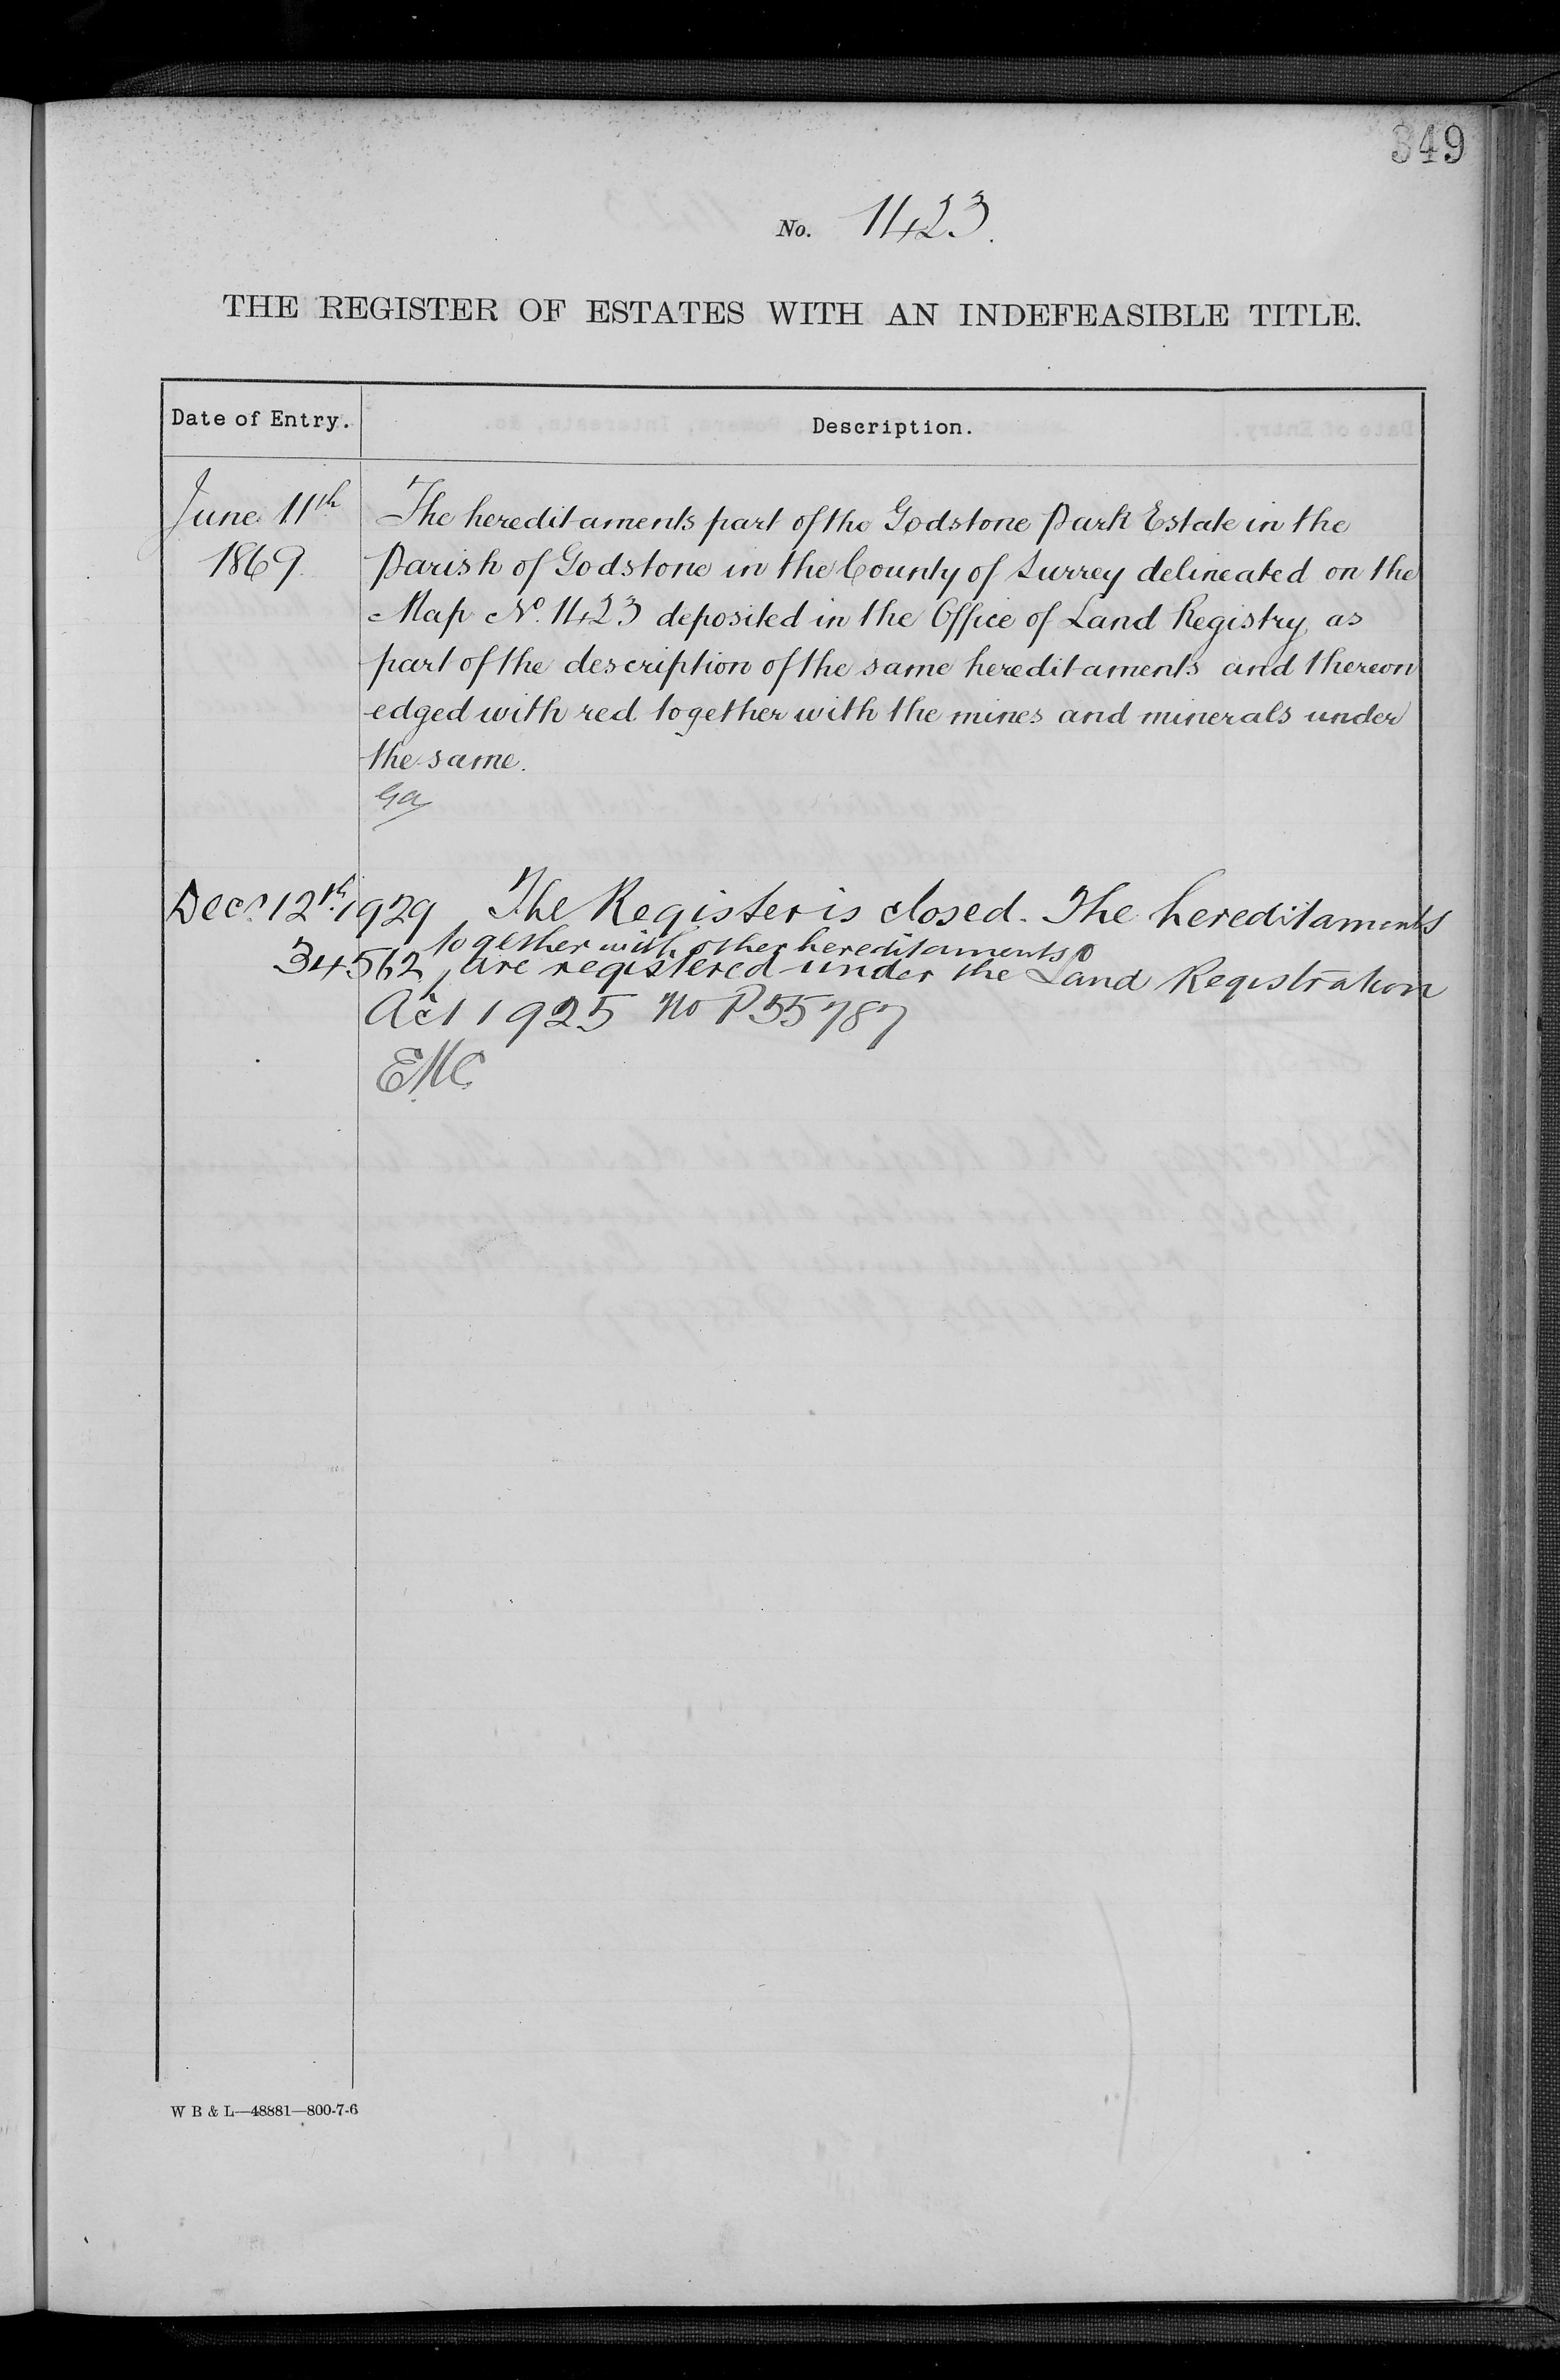 349
No. 1423.
THE REGISTER OF ESTATES WITH AN INDEFEASIBLE TITLE.
Date of Entry.
Description.
June 11th
1869.
The hereditaments part of the Godstone Park Estate in the
Parish of Godstone in the County of Surrey delineated on the
Map No. 1423 deposited in the Office of Land Registry, as
part of the description of the same hereditaments and thereon
edged with red together with the mines and minerals under
the same.
Dec. 12th 1929 The Register is closed. The hereditaments
together with other hereditaments
34562 are registered under the Land Registration
Act 1925 No P55787
EMC
W B & L—48881—800-7-6